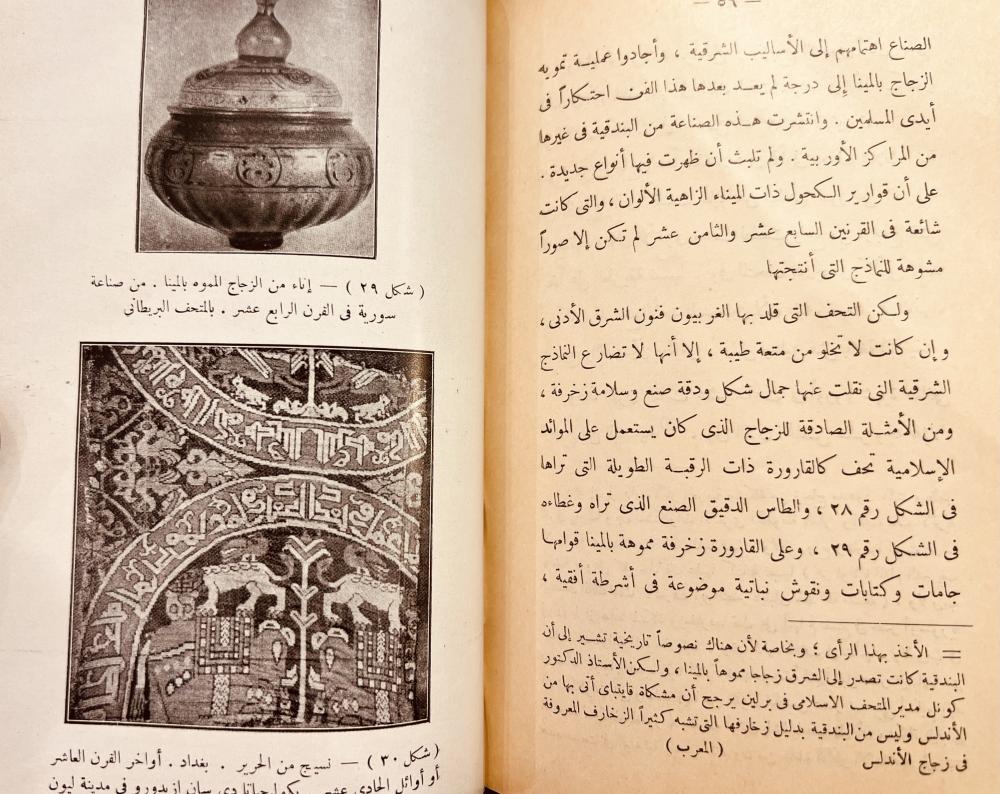 — ٥٩ —
الصناع اهتمامهم إلى الأساليب الشرقية ، وأجادوا عمليـة تمويه
الزجاج بالمينا إلى درجة لم يعـد بعدها هذا الفن احتكاراً فى
أيدى المسلمين . وانتشرت هـذه الصناعة من البندقية فى غيرها
من المراكز الأوربية . ولم تلبث أن ظهرت فيها أنواع جديدة .
على أن قوارير الكحول ذات الميناء الزاهية الألوان ، والتى كانت
شائعة فى القرنين السابع عشر والثامن عشر لم تكن إلا صوراً
مشوهة للنماذج التى أنتجتها
ولكن التحف التى قلد بها الغربيون فنون الشرق الأدنى ،
وإن كانت لا تخلو من متعة طيبة ، إلا أنها لا تضارع النماذج
الشرقية التى نقلت عنها جمال شكل ودقة صنع وسلامة زخرفة ،
ومن الأمثـلة الصادقة للزجاج الذى كان يستعمل على الموائد
الإسلامية تحف كالقارورة ذات الرقبـة الطويلة التى تراها
فى الشكل رقم ٢٨ ، والطاس الدقيق الصنع الذى تراه وغطاءه
فى الشكل رقم ٢٩ ، وعلى القارورة زخرفة مموهة بالمينا قوامها
جامات وكتابات ونقوش نباتية موضوعة فى أشرطة أفقية ،
= الأخذ بهذا الرأى ؛ وبخاصة لأن هناك نصوصاً تاريخية تشير إلى أن
البندقية كانت تصدر إلى الشرق زجاجا مموهاً بالمينا ، ولكن الأستاذ الدكتور
كونل مدير المتحف الاسلامى فى برلين يرجح أن مشكاة قايتباى أتى بها من
الأندلس وليس من البندقية بدليل زخارفها التى تشبه كثيراً الزخارف المعروفة
فى زجاج الأندلس ( المعرب )
( شكل ٢٩ ) — إناء من الزجاج المموه بالمينا . من صناعة
سورية فى القرن الرابع عشر . بالمتحف البريطانى
( شكل ٣٠ ) — نسيج من الحرير . بغداد . أواخر القرن العاشر
أو أوائل الحادى عشر . دى سان إزيدورو فى مدينة ليون